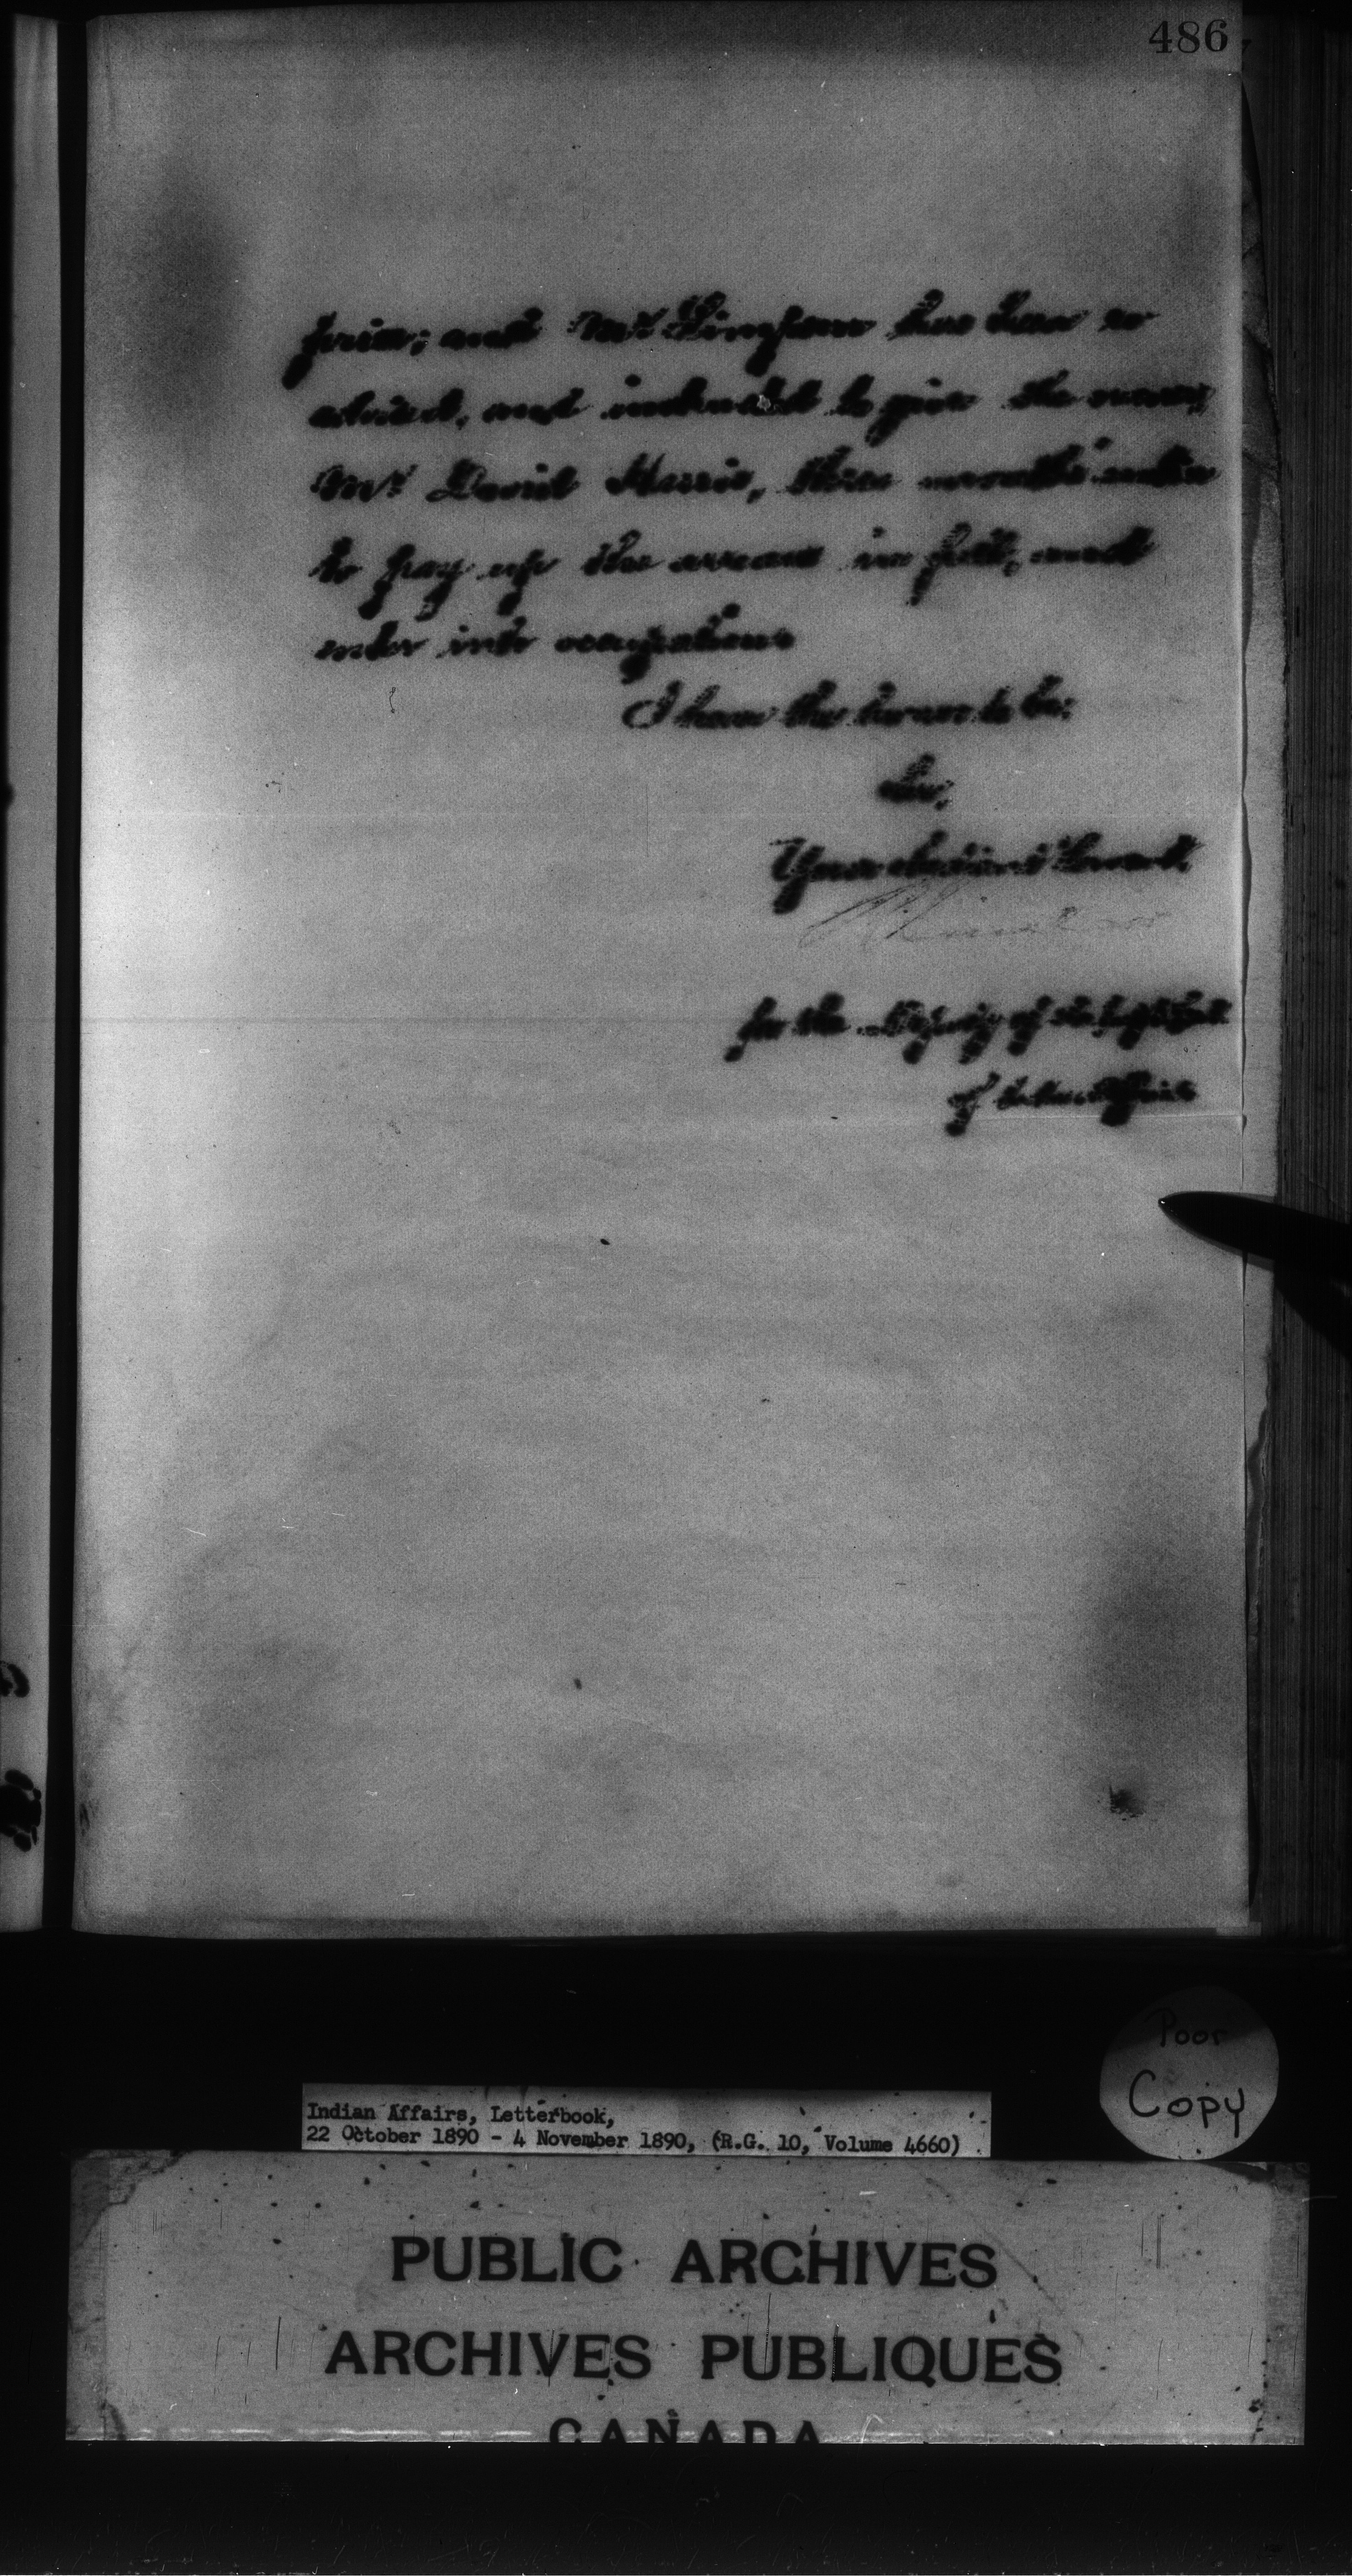 486
price; and Mr Simpson has been so
advised, and instructed to give the owner,
Mr David Harris, three months' notice
to pay up the arrears in full, and
enter into occupation
I have the honor to be:
Sir,
Your obedient Servant.
for the Deputy of the Supt Genl
of Indian Affairs
Poor
Copy
Indian Affairs, Letterbook,
22 October 1890 - 4 November 1890, (R.G. 10, Volume 4660)
PUBLIC ARCHIVES
ARCHIVES PUBLIQUES
CANADA